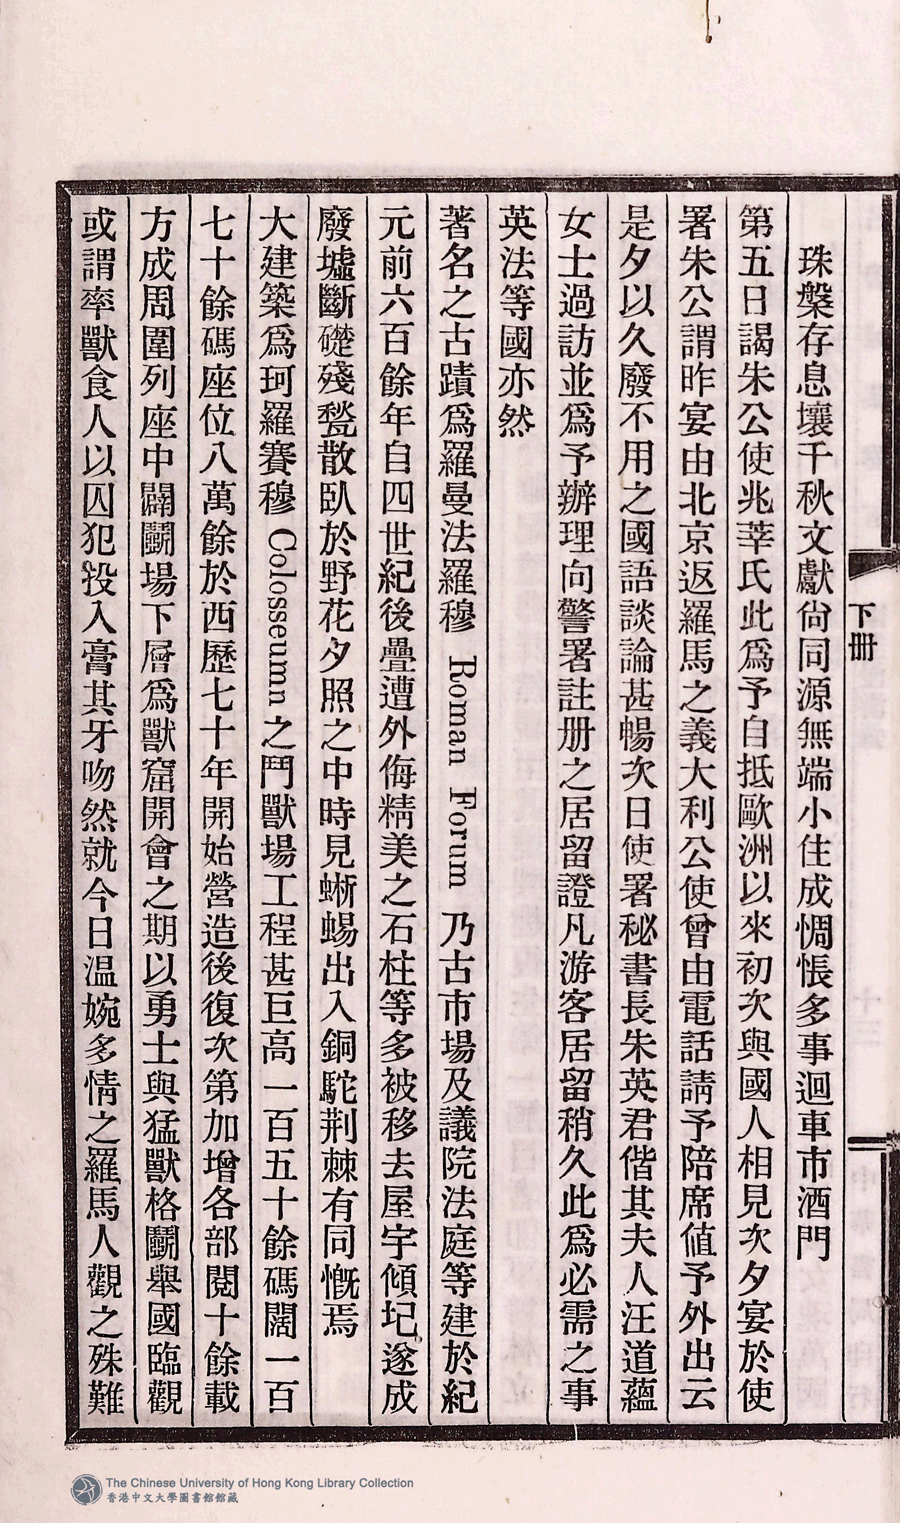 下冊
珠槃存息壤千秋文獻尙同源無端小住成惆悵多事迴車市酒門
第五日謁朱公使兆莘氏此爲予自抵歐洲以來初次與國人相見次夕宴於使
署朱公謂昨宴由北京返羅馬之義大利公使曾由電話請予陪席値予外出云
是夕以久廢不用之國語談論甚暢次日使署秘書長朱英君偕其夫人汪道蘊
女士過訪並爲予辦理向警署註册之居留證凡游客居留稍久此爲必需之事
英法等國亦然
著名之古蹟爲羅曼法羅穆 Roman Forum 乃古市場及議院法庭等建於紀
元前六百餘年自四世紀後疊遭外侮精美之石柱等多被移去屋宇傾圮遂成
廢墟斷礎殘甃散臥於野花夕照之中時見蜥蜴出入銅駝荆棘有同慨焉
大建築爲珂羅賽穆 Colosseumn 之鬥獸場工程甚巨高一百五十餘碼闊一百
七十餘碼座位八萬餘於西歷七十年開始營造後復次第加增各部閱十餘載
方成周圍列座中闢鬭場下層爲獸窟開會之期以勇士與猛獸格鬭舉國臨觀
或謂率獸食人以囚犯投入膏其牙吻然就今日温婉多情之羅馬人觀之殊難
The Chinese University of Hong Kong Library Collection
香港中文大學圖書館館藏